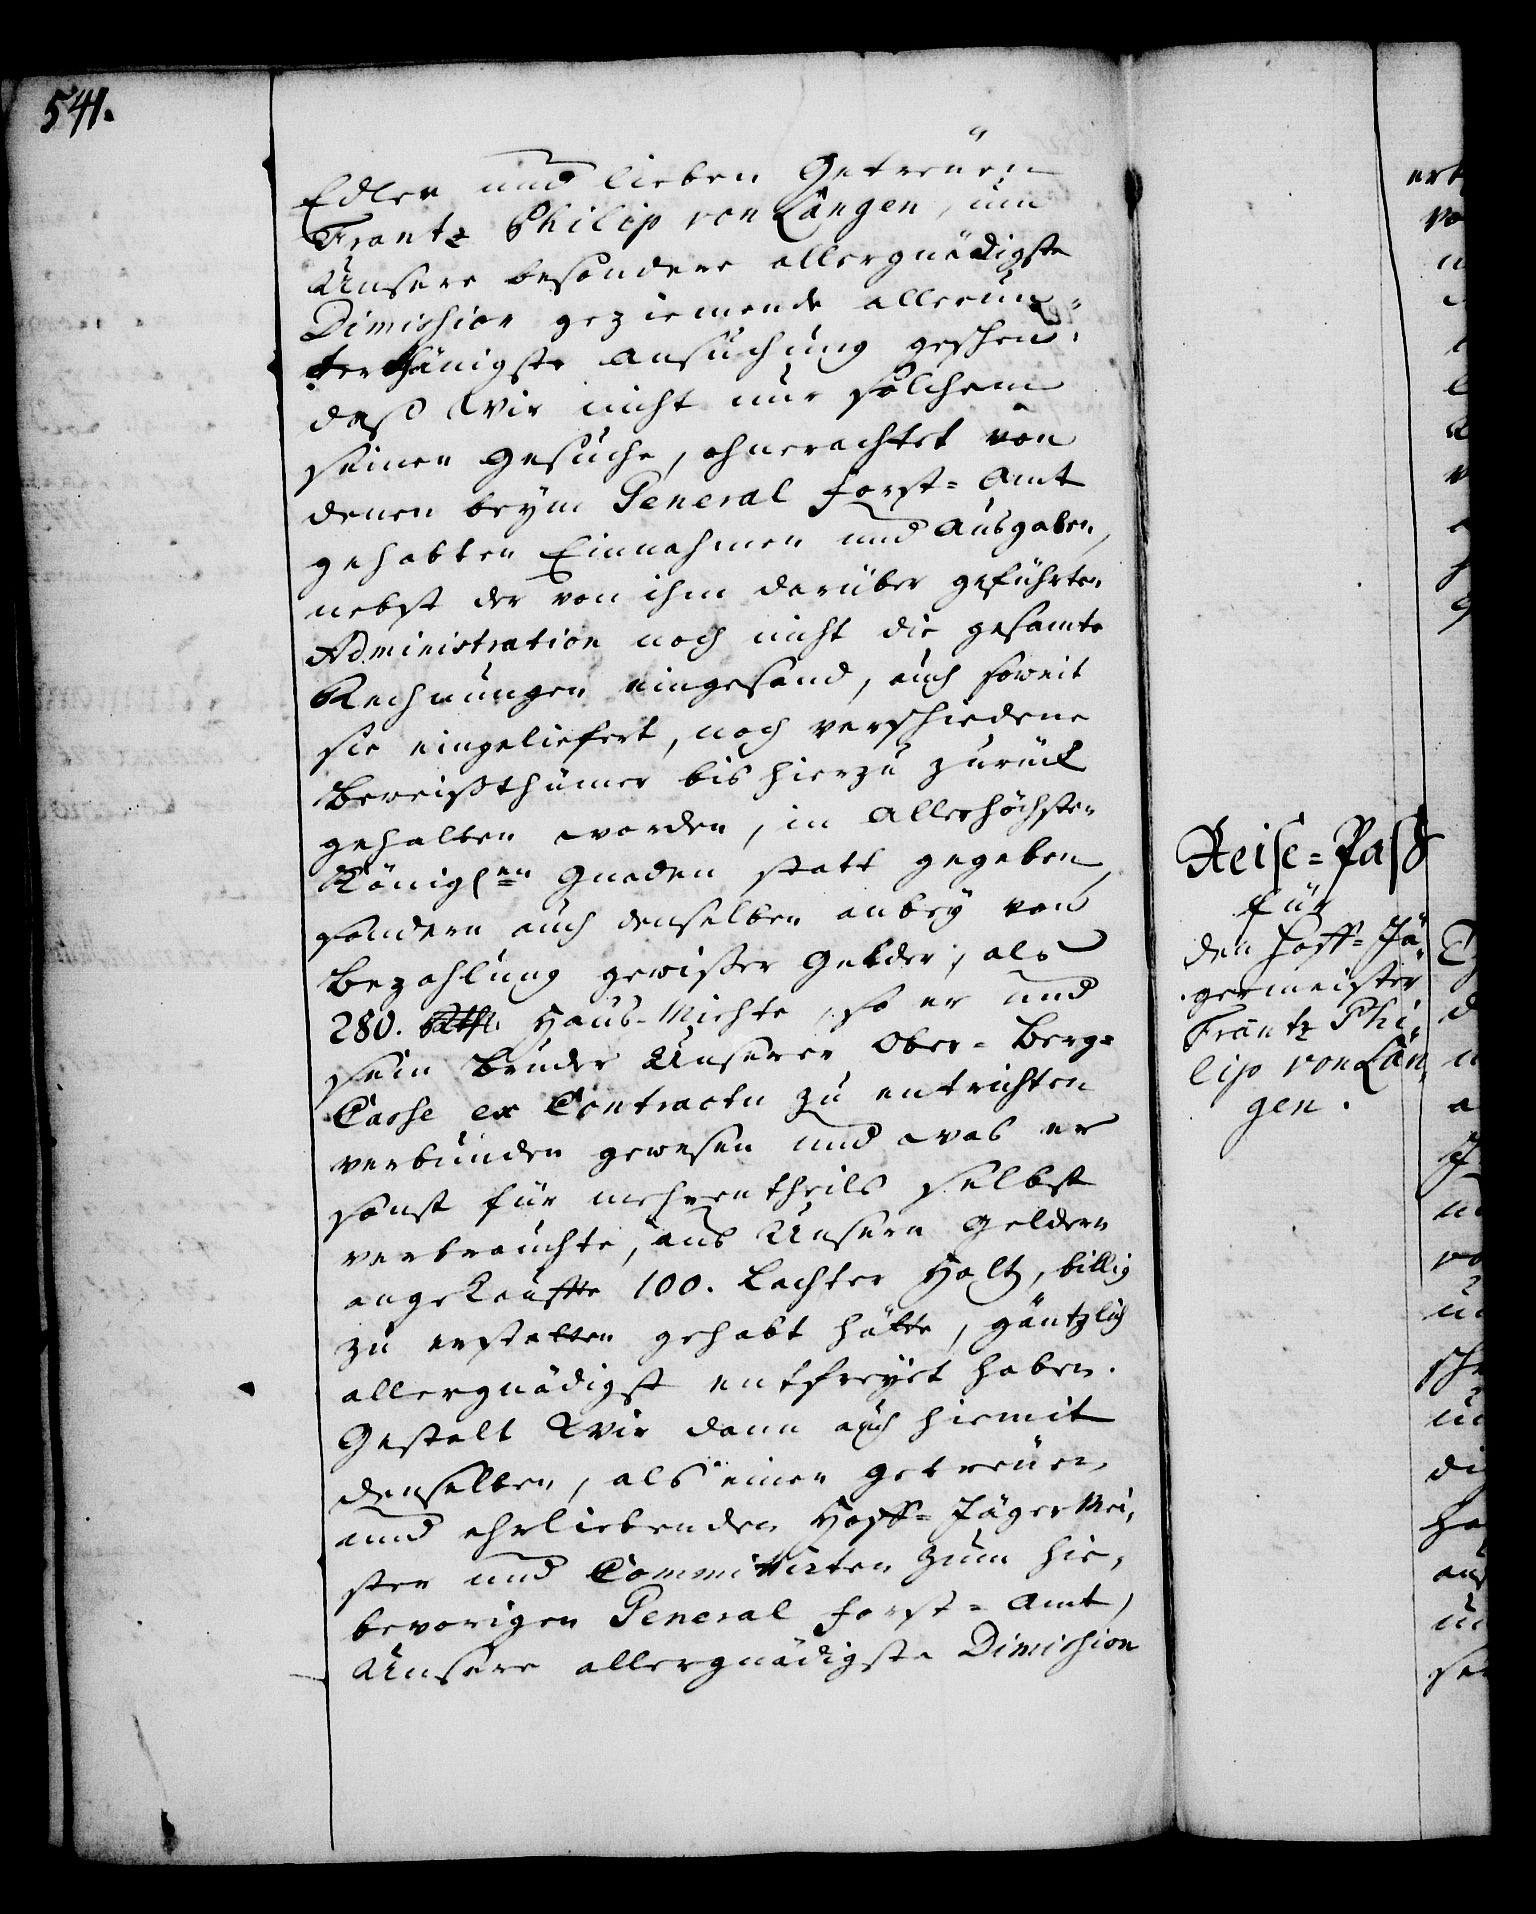 541.
Edler und lieben Getreüen
Frantz Philip von Langen, um
Unsere besondere allergnädigste
Dimission geziemende allerun-
terthänigste Ansuchung geschehen:
daß Wir nicht nur solchem
seinen Gesuche, ohnerachtet von
denen beym General Forst-Amt
gehabten Einnahmen und Ausgaben,
nebst der von ihm darüber geführten
Administration noch nicht die gesamte
Rechnungen eingesand, auch soweit
sie eingeliefert, noch verschiedene
Beweißthümer bis hierzu zurück
gehalten worden, in Allerhöchsten
Königl.en Gnaden statt gegeben,
sondern auch denselben anbey von
Bezahlung gewißer Gelder, als
280. Rthl. Haus-Miehte, so er und
sein Bruder Unserer Ober-Berg-
Casse ex Contractu zu entrichten
verbunden gewesen und was er
sonst für mehrentheils selbst
verbrauchte, aus Unsern Geldern
angekauffte 100. Lachter Holtz, billig
zu erstatten gehabt hätte, gäntzlich
allergnädigst entfreyet haben.
Gestalt Wir dann auch hiemit
denselben, als einen getreüen
und ehrliebenden Hoff-JägerMei-
ster und Committirten zum hie-
bevorigen General Forst-Amt,
Unsere allergnädigste Dimission
Reise-Paß
für
den Hoff-Jä-
germeister
Frantz Phi-
lip von Lan-
gen.